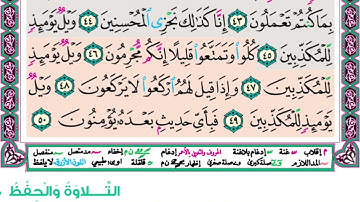 بِمَا كُنتُمْ تَعْمَلُونَ ﴿٤٣﴾ إِنَّا كَذَٰلِكَ نَجْزِي الْمُحْسِنِينَ ﴿٤٤﴾ وَيْلٌ يَوْمَئِذٍ
لِّلْمُكَذِّبِينَ ﴿٤٥﴾ كُلُوا وَتَمَتَّعُوا قَلِيلًا إِنَّكُم مُّجْرِمُونَ ﴿٤٦﴾ وَيْلٌ يَوْمَئِذٍ
لِّلْمُكَذِّبِينَ ﴿٤٧﴾ وَإِذَا قِيلَ لَهُمُ ارْكَعُوا لَا يَرْكَعُونَ ﴿٤٨﴾ وَيْلٌ
يَوْمَئِذٍ لِّلْمُكَذِّبِينَ ﴿٤٩﴾ فَبِأَيِّ حَدِيثٍ بَعْدَهُ يُؤْمِنُونَ ﴿٥٠﴾
التِّلَاوَةُ وَالْحِفْظُ